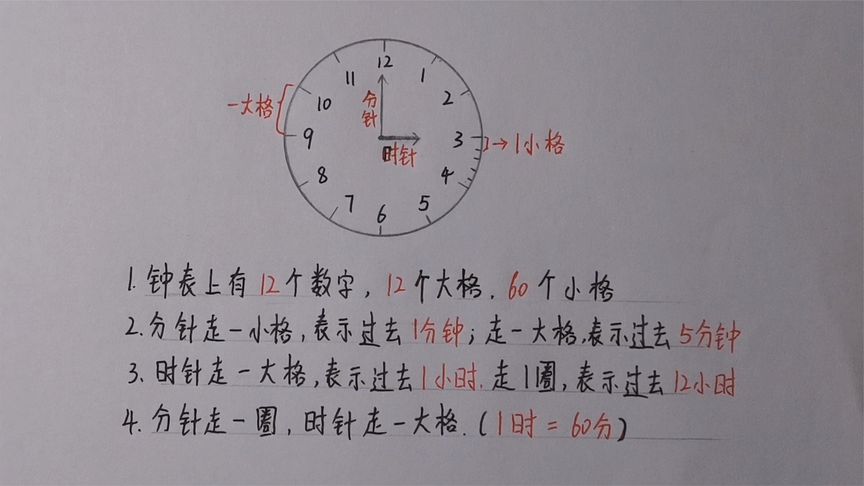 12
11
1
10
2
9
3
8
4
7
5
6
分针
时针
一大格
→1小格
1. 钟表上有12个数字，12个大格，60个小格
2. 分针走一小格，表示过去1分钟；走一大格，表示过去5分钟
3. 时针走一大格，表示过去1小时. 走1圈，表示过去12小时
4. 分针走一圈，时针走一大格.（1时=60分）